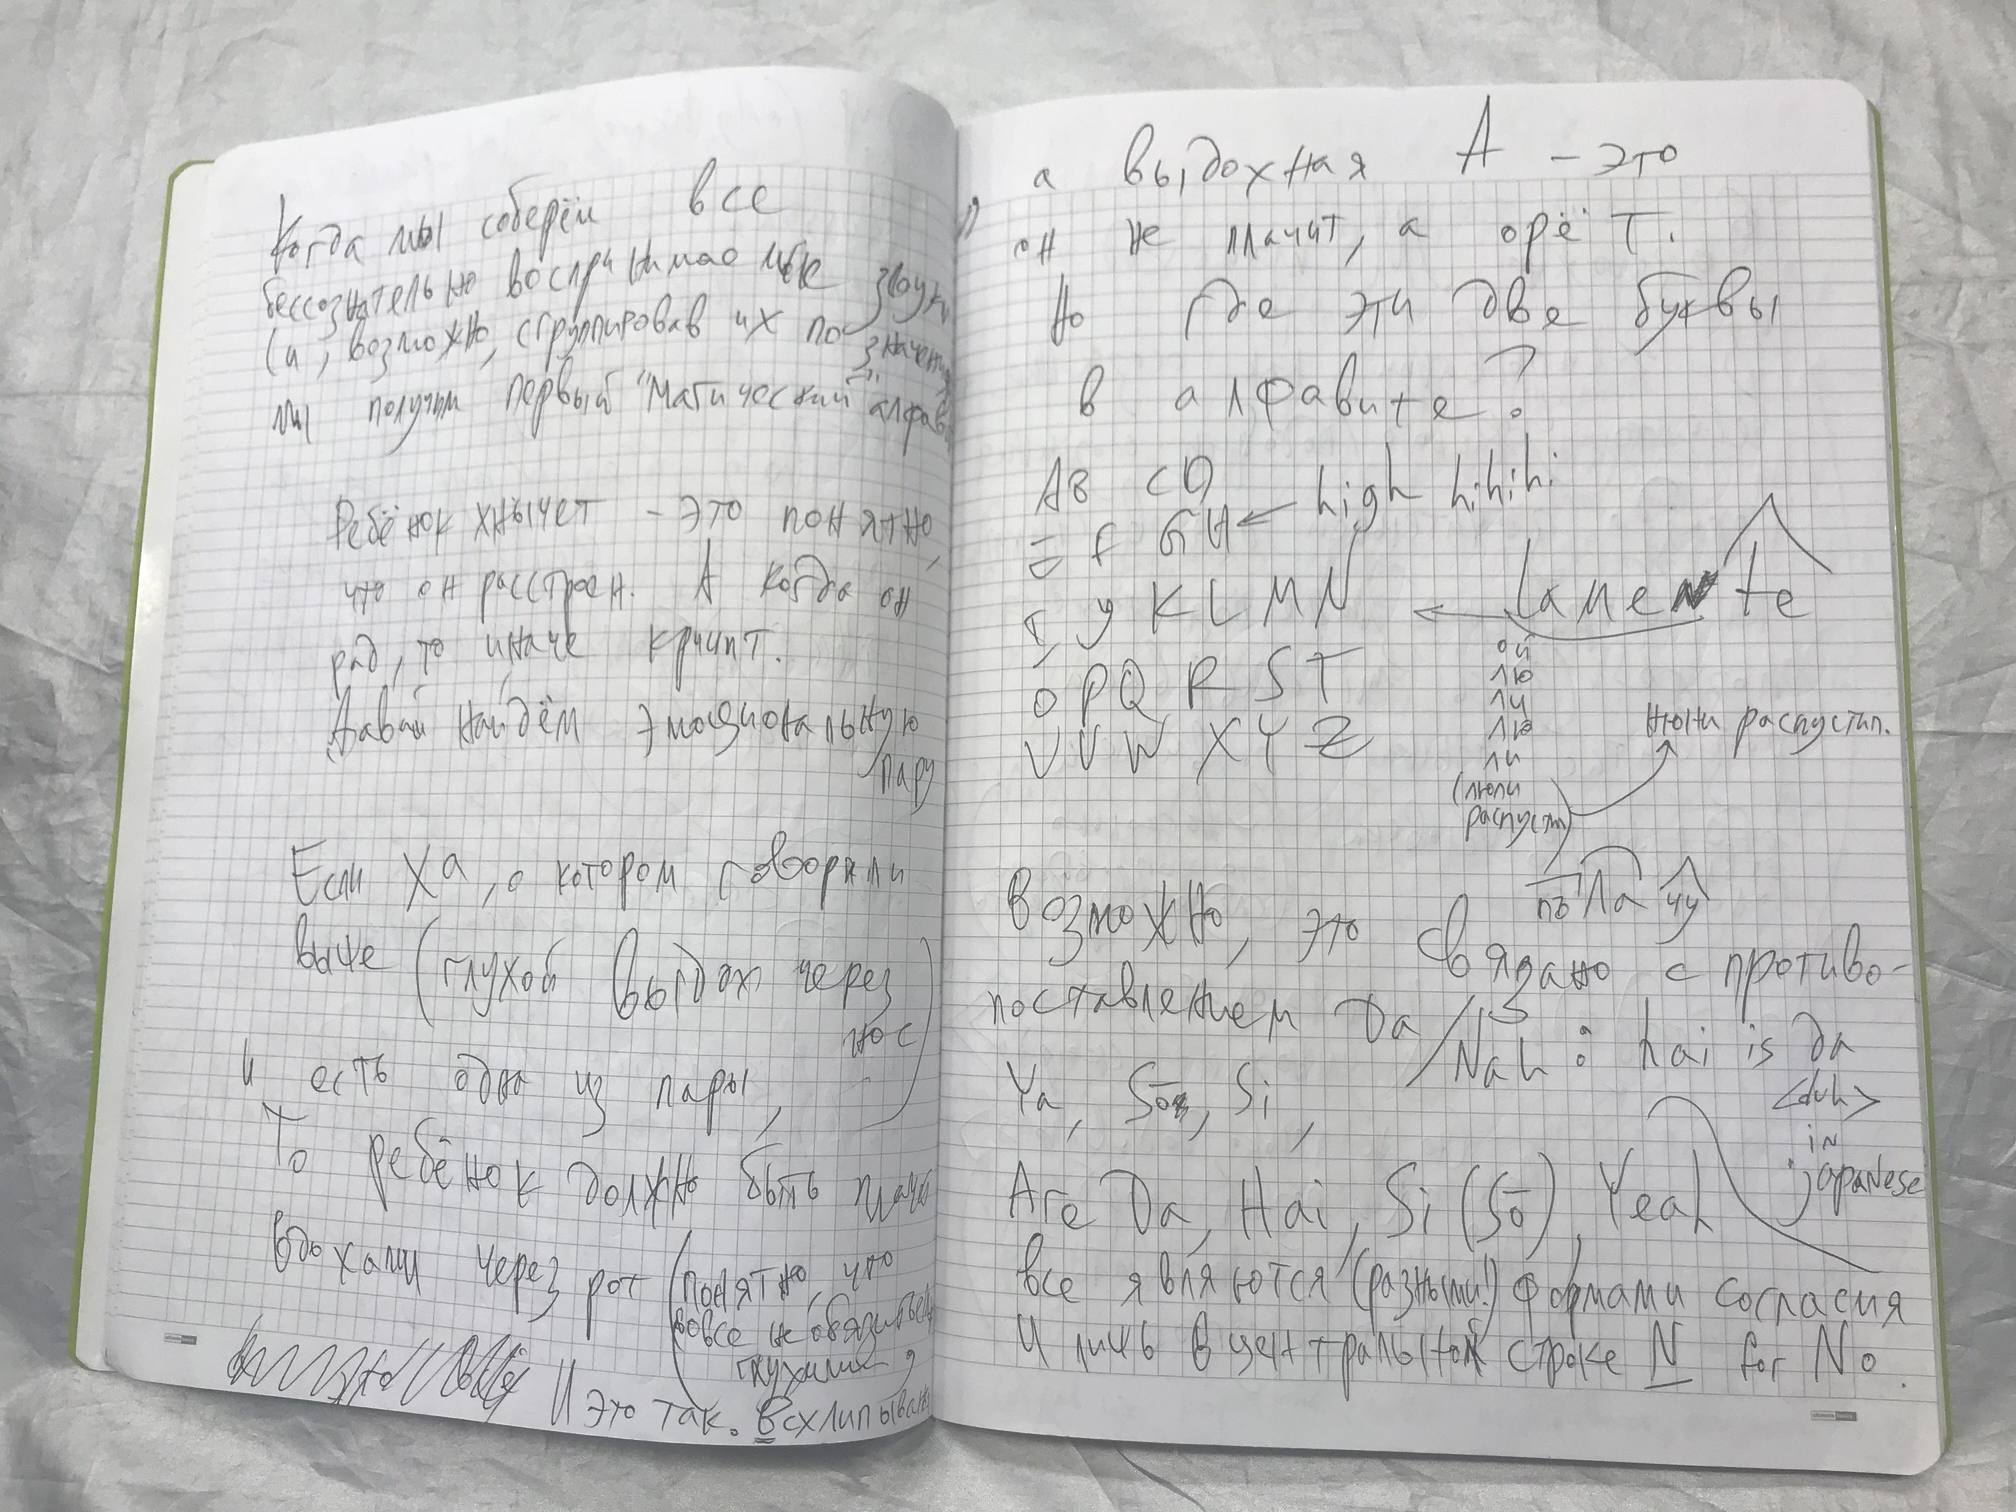 Когда мы соберём все
бессознательно воспринимаемые звуки
(и, возможно, сгруппировав их по значению
мы получим первый "магический" алфав
Ребёнок хнычет - это понятно,
что он расстроен. А когда он
рад, то иначе кричит.
Давай найдём эмоциональную
пару
Если Ха, о котором говорили
выше (глухой выдох через
нос)
и есть одна из пары,
То ребёнок должно быть плачет
вдохами через рот (понятно, что
вовсе не обязательно
глухими,
И это так. Всхлипыван
а выдохная А - это
он не плачит, а орёт.
Но где эти две буквы
в алфавите?
AB CD
E F GH ← high hihihi
I, y K L M N ← lamente
O P Q R S T
U V W X Y Z
ой
лю
ли
лю
ли
(люли
распустил)
нюни распустил.
пъ ла чу
Возможно, это связано с противо-
поставлением Да / Nah: hai is да
<duh>
in
japanese
Ya, Sō, Si,
Are Да, Hai, Si (Sō), Yeah
все являются (разными!) формами согласия
И лишь в центральной строке N for No.